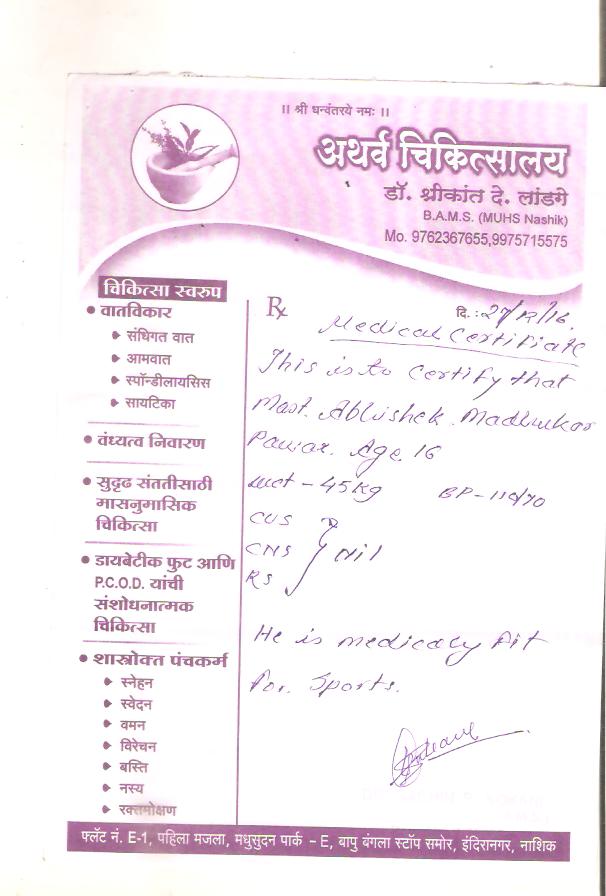 ।। श्री धन्वंतरये नमः ।।
अथर्व चिकित्सालय
डॉ. श्रीकांत दे. लांडगे
B.A.M.S. (MUHS Nashik)
Mo. 9762367655,9975715575
चिकित्सा स्वरुप
• वातविकार
संधिगत वात
आमवात
स्पॉन्डीलायसिस
सायटिका
• वंध्यत्व निवारण
• सुदृढ संततीसाठी
मासनुमासिक
चिकित्सा
• डायबेटीक फुट आणि
P.C.O.D. यांची
संशोधनात्मक
चिकित्सा
• शास्त्रोक्त पंचकर्म
स्नेहन
स्वेदन
वमन
विरेचन
बस्ति
नस्य
रक्तमोक्षण
Rx
दि. : 27/12/16.
Medical Certificate
This is to certify that
Mast. Abhishek. Madhukar
Pawar. Age. 16
wt - 45kg BP - 110/70
CVS
CNS } Nil
RS
He is medicaly fit
For. Sports.
फ्लॅट नं. E-1, पहिला मजला, मधुसुदन पार्क - E, बापु बंगला स्टॉप समोर, इंदिरानगर, नाशिक